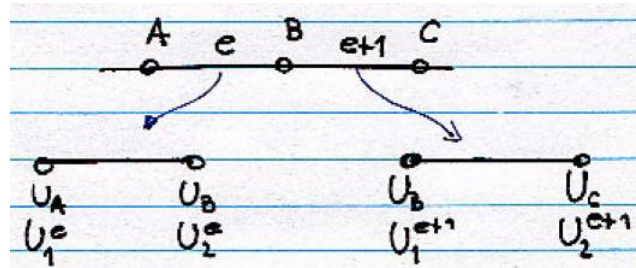 A e B e+1 C
U_A U_B U_B U_C
U_1^e U_2^e U_1^{e+1} U_2^{e+1}